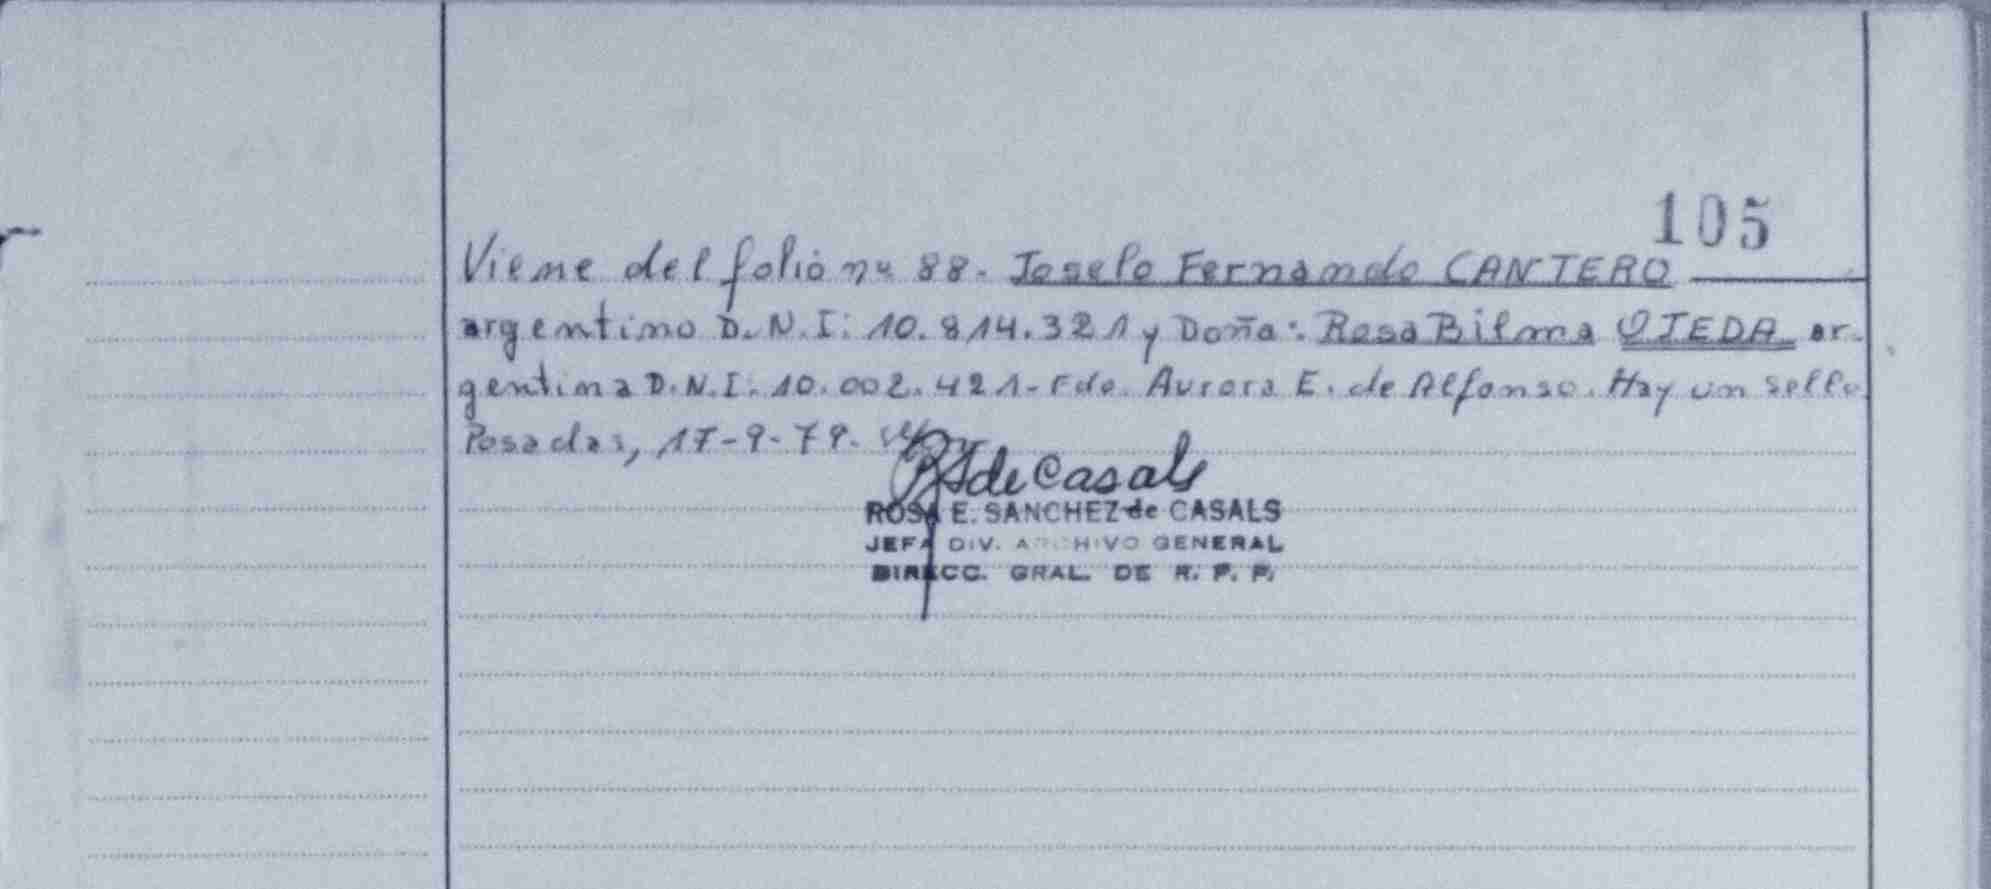 105
Viene del folio nº 88. Joselo Fernando CANTERO
argentino D.N.I: 10.814.321 y Doña: Rosa Bilma OJEDA ar-
gentina D.N.I: 10.002.421- Fdo. Aurora E. de Alfonso. Hay un sello
Posadas, 17-9-79.
RSdeCasals
ROSA E. SANCHEZ de CASALS
JEFA DIV. ARCHIVO GENERAL
DIRECC. GRAL. DE R. P. P.